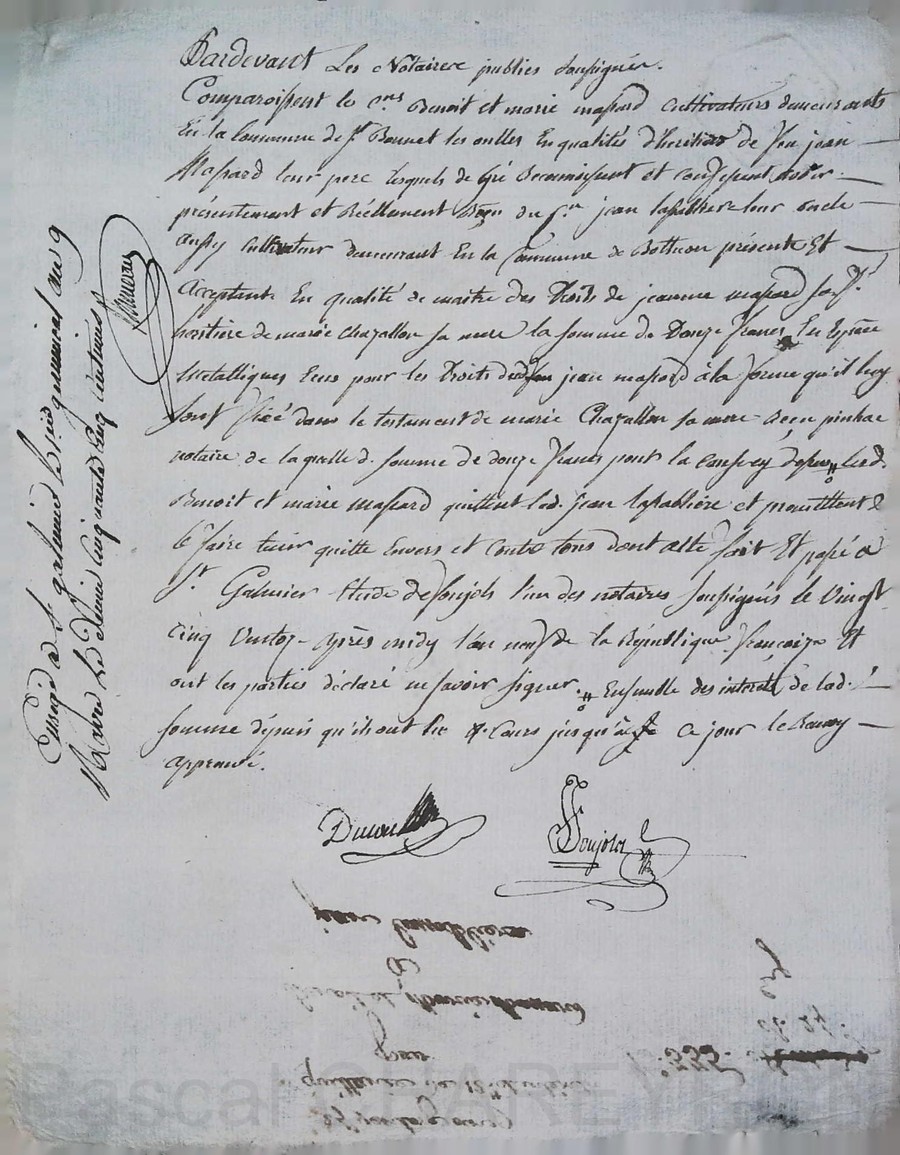 Pardevant Les Notaires publics soussignés.
Comparoissent le Cens Benoit et marie massard cultivateurs demeurants
En la Commune de St Bonnet les oulles En qualités d'heritiers de feu jean
Massard leur pere lesquels de gré Reconnoissent et confessent avoir
présentement et Réellement Reçu du Cen jean lapalliere leur oncle
aussy cultivateur demeurant En la Commune de Bothéon présente Et
Acceptant En qualité de maitre des Droits de jeanne massard sa fe
héritière de marie Chazallon sa mere la somme de Douze francs En Espèce
Metalliques Eens pour les Droits dud feu jean massard à la forme qu'il luy
sont fixé dans le testament de marie Chazallon sa mere Reçu pinhac
notaire de laquelle d. somme de douze francs lesd.
Benoit et marie massard quittent led. jean lapalliere et promettent de
le faire tenir quitte Envers et Contre tous dont acte fait Et passé a
St Galmier Etude de Soujols l'un des notaires soussignés le vingt
cinq vantoz après midy l'an neuf de la République francoize Et
ont les parties déclaré ne savoir signer. Ensemble des interets de lad.
somme dépuis qu'ils ont pu Cours jusqu'à Ce jour le Renvoy
approuvé.
Soujols
Enregé a St galmier le six germinal an 9
Reçu Le Deime Cinquante Cinq centimes
jean lapalliere
a
Benoit et Marie Massard
par
quittance de 12tt
n° 335.